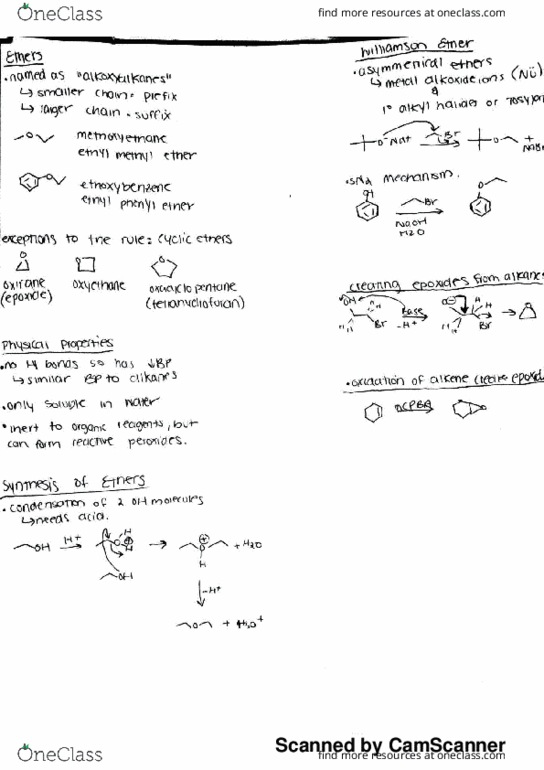 OneClass
find more resources at oneclass.com
Ethers
• named as "alkoxyalkanes"
↳ smaller chain = prefix
↳ larger chain = suffix
methoxyethane
ethyl methyl ether
ethoxybenzene
ethyl phenyl ether
exceptions to the rule: cyclic ethers
oxirane
(epoxide)
oxyethane
oxacyclopentane
(tetrahydrofuran)
Physical Properties
• no H bonds so has ↓BP
↳ similar BP to alkanes
• only soluble in water
• inert to organic reagents, but
can form reactive peroxides.
Synthesis of Ethers
• condensation of 2 OH molecules
↳ needs acid.
OH H+ + H2O
OH
H
-H+
+ H3O+
Williamson Ether
• asymmenirical ethers
↳ metal alkoxide ions (Nü)
&
1° alkyl halides or tosylat
O-Na+ Br +
NaBr
• SN2 mechanism.
OH
Br
NaOH
H2O
creating epoxides from alkane
OH Br Base
-H+ Br
• oxidation of alkene
MCPBA
OneClass
find more resources at oneclass.com
Scanned by CamScanner